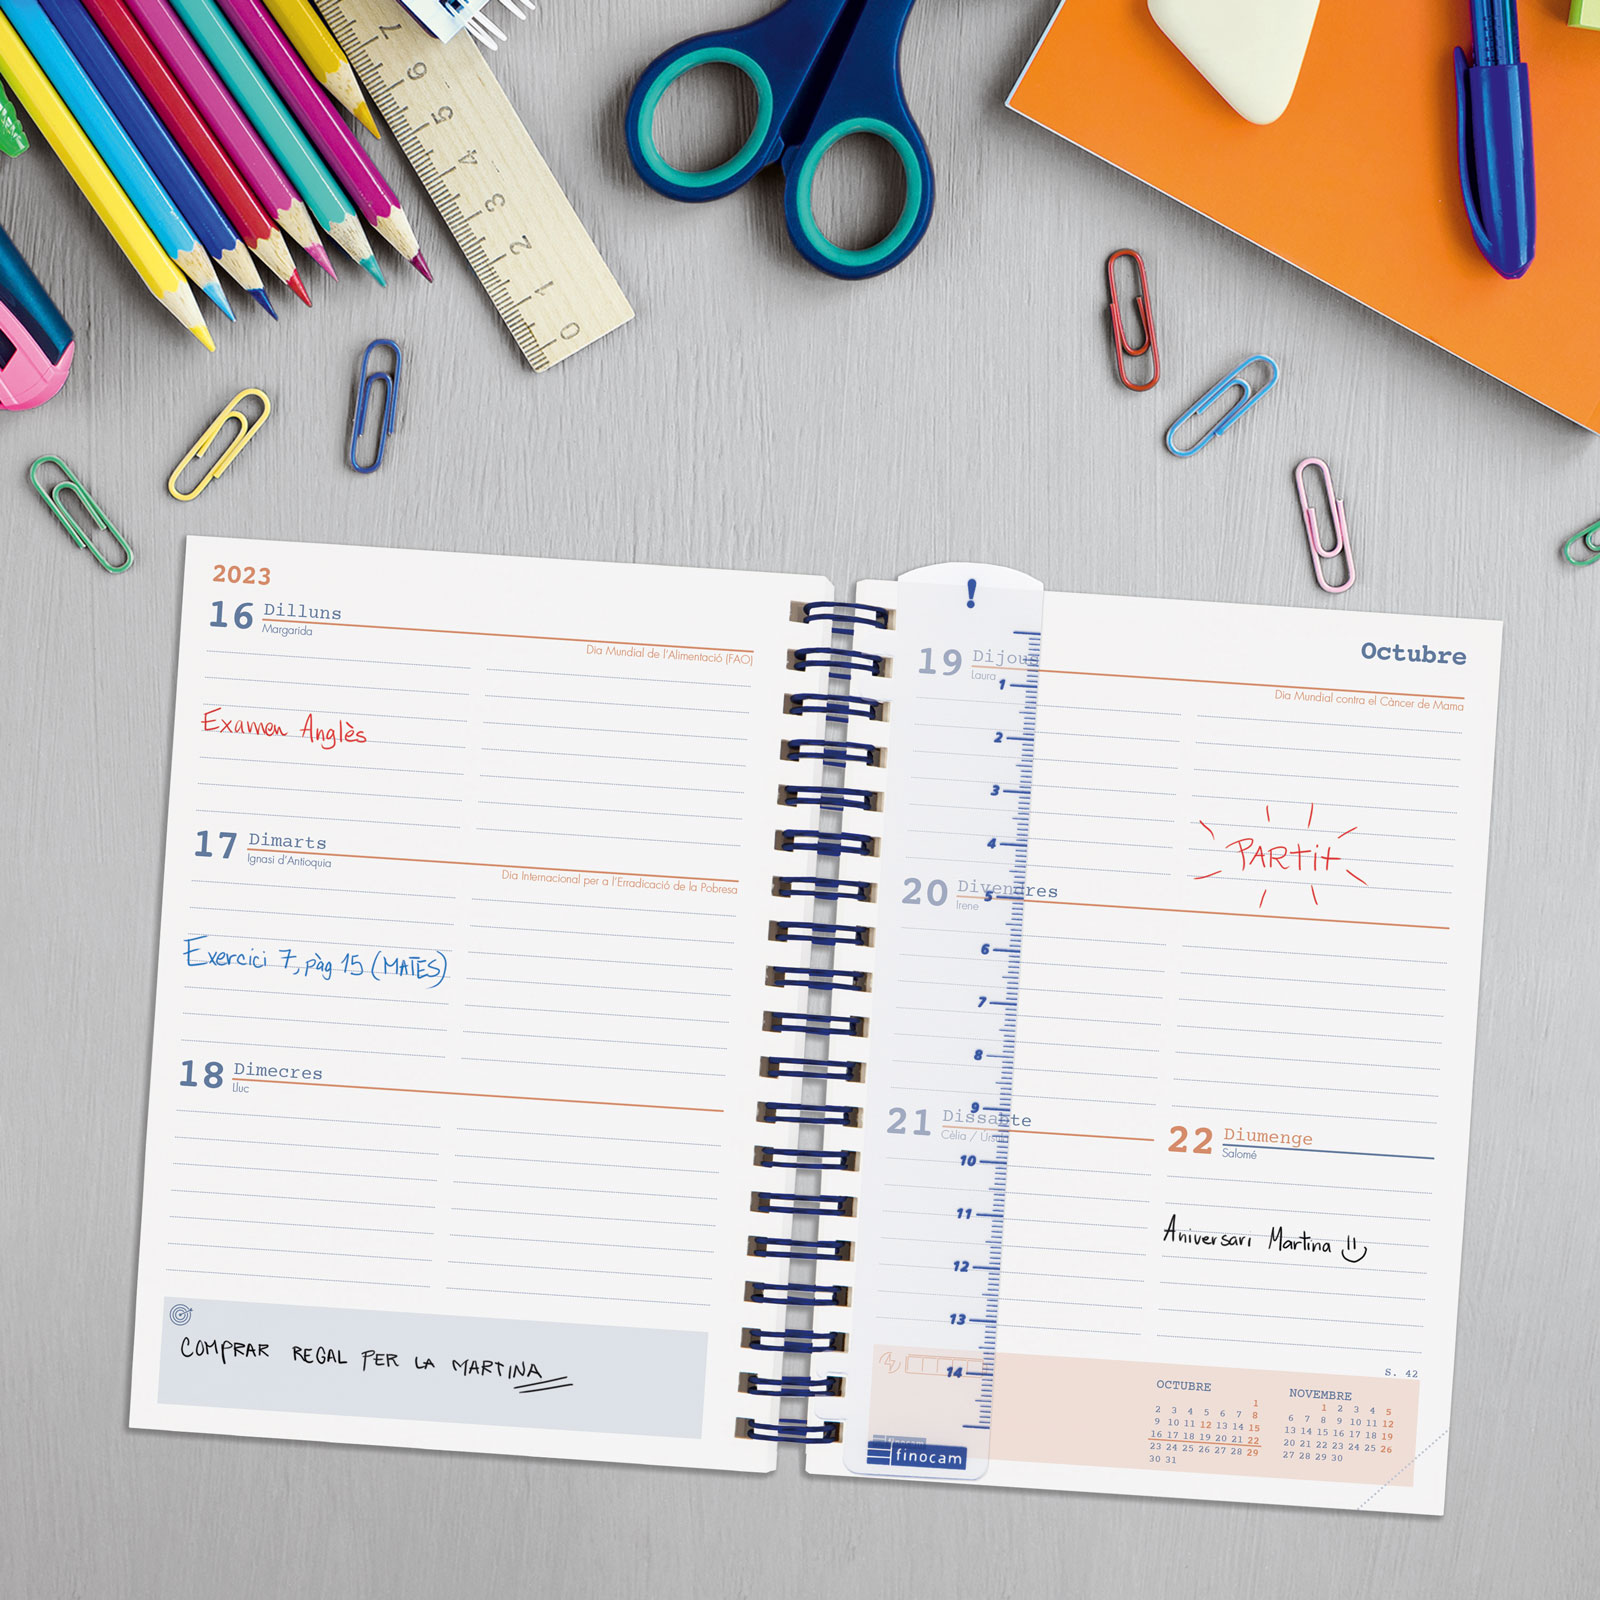 7
6
5
4
3
2
1
0
2023
16 Dilluns
Margarida
Dia Mundial de l'Alimentació (FAO)
Examen Anglès
17 Dimarts
Ignasi d'Antioquia
Dia Internacional per a l'Erradicació de la Pobresa
Exercici 7, pàg 15 (MATES)
18 Dimecres
Lluc
COMPRAR REGAL PER LA MARTINA
!
Octubre
19 Dijous
Laura
Dia Mundial contra el Càncer de Mama
PARTIT
20 Divendres
Irene
21 Dissabte
Cèlia / Úrsula
22 Diumenge
Salomé
Aniversari Martina
1
2
3
4
5
6
7
8
9
10
11
12
13
14
finocam
S. 42
OCTUBRE
1
2 3 4 5 6 7 8
9 10 11 12 13 14 15
16 17 18 19 20 21 22
23 24 25 26 27 28 29
30 31
NOVEMBRE
1 2 3 4 5
6 7 8 9 10 11 12
13 14 15 16 17 18 19
20 21 22 23 24 25 26
27 28 29 30